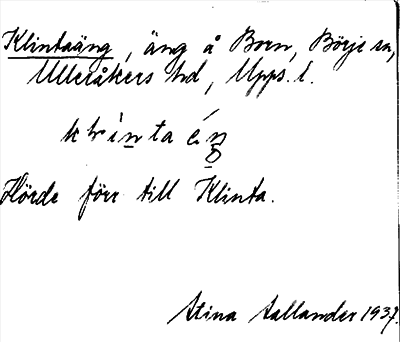 Klintaäng, äng å Born, Börje sn,
Ulleråkers hd, Upps. l.
Hörde förr till Klinta.
Stina Sallander 1937.